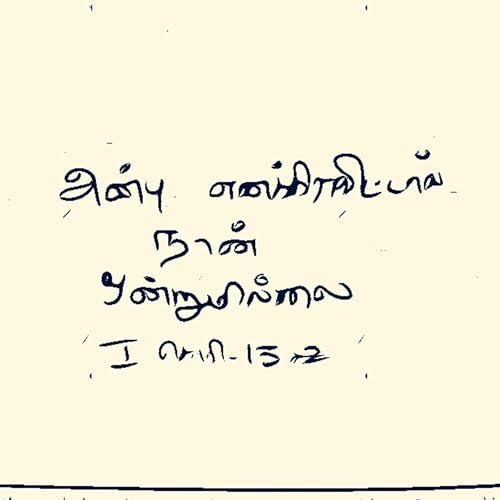 அன்பு எனக்கிராவிட்டால்
நான்
ஒன்றுமில்லை
I கொரி-13:2